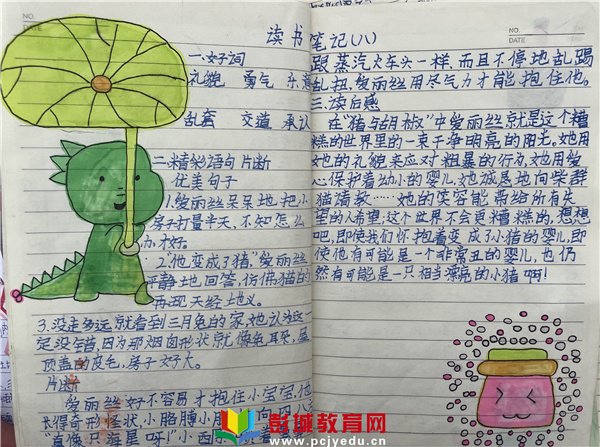 NO.
DATE
读书笔记(八)
一.好词
礼貌 勇气 乐意
乱套 交道 承认
二.精彩语句 片断
优美句子
1.爱丽丝呆呆地把小
房子打量半天,不知怎么
办才好。
2."他变成了猪"爱丽丝
平静地回答,仿佛猫的
再现天经地义。
3.没走多远就看到三月兔的家,她认为这一
定没错,因为那烟囱形状就像兔耳朵,屋
顶盖的皮毛,房子好大。
片断
爱丽丝好不容易才抱住小宝宝,他
长得奇形怪状,小胳膊小
"真像只海星呀!"小
NO.
DATE
跟蒸汽火车头一样,而且不停地乱踢
乱扭,爱丽丝用尽气力才能抱住他。
三.读后感
在"猪与胡椒"中爱丽丝就是这个糟
糕的世界里的一束干净明亮的阳光。她用
她的礼貌来应对粗暴的行为,她用爱
心保护着幼小的婴儿,她诚恳地向柴郡
猫请教……她的笑容能带给所有失
望的人希望,这个世界不会更糟糕的,想想
吧,即使我们怀抱着变成了小猪的婴儿,即
使他有可能是一个非常丑的婴儿,也仍
然有可能是一只相当漂亮的小猪啊!
彭城教育网
www.pcjyedu.cn